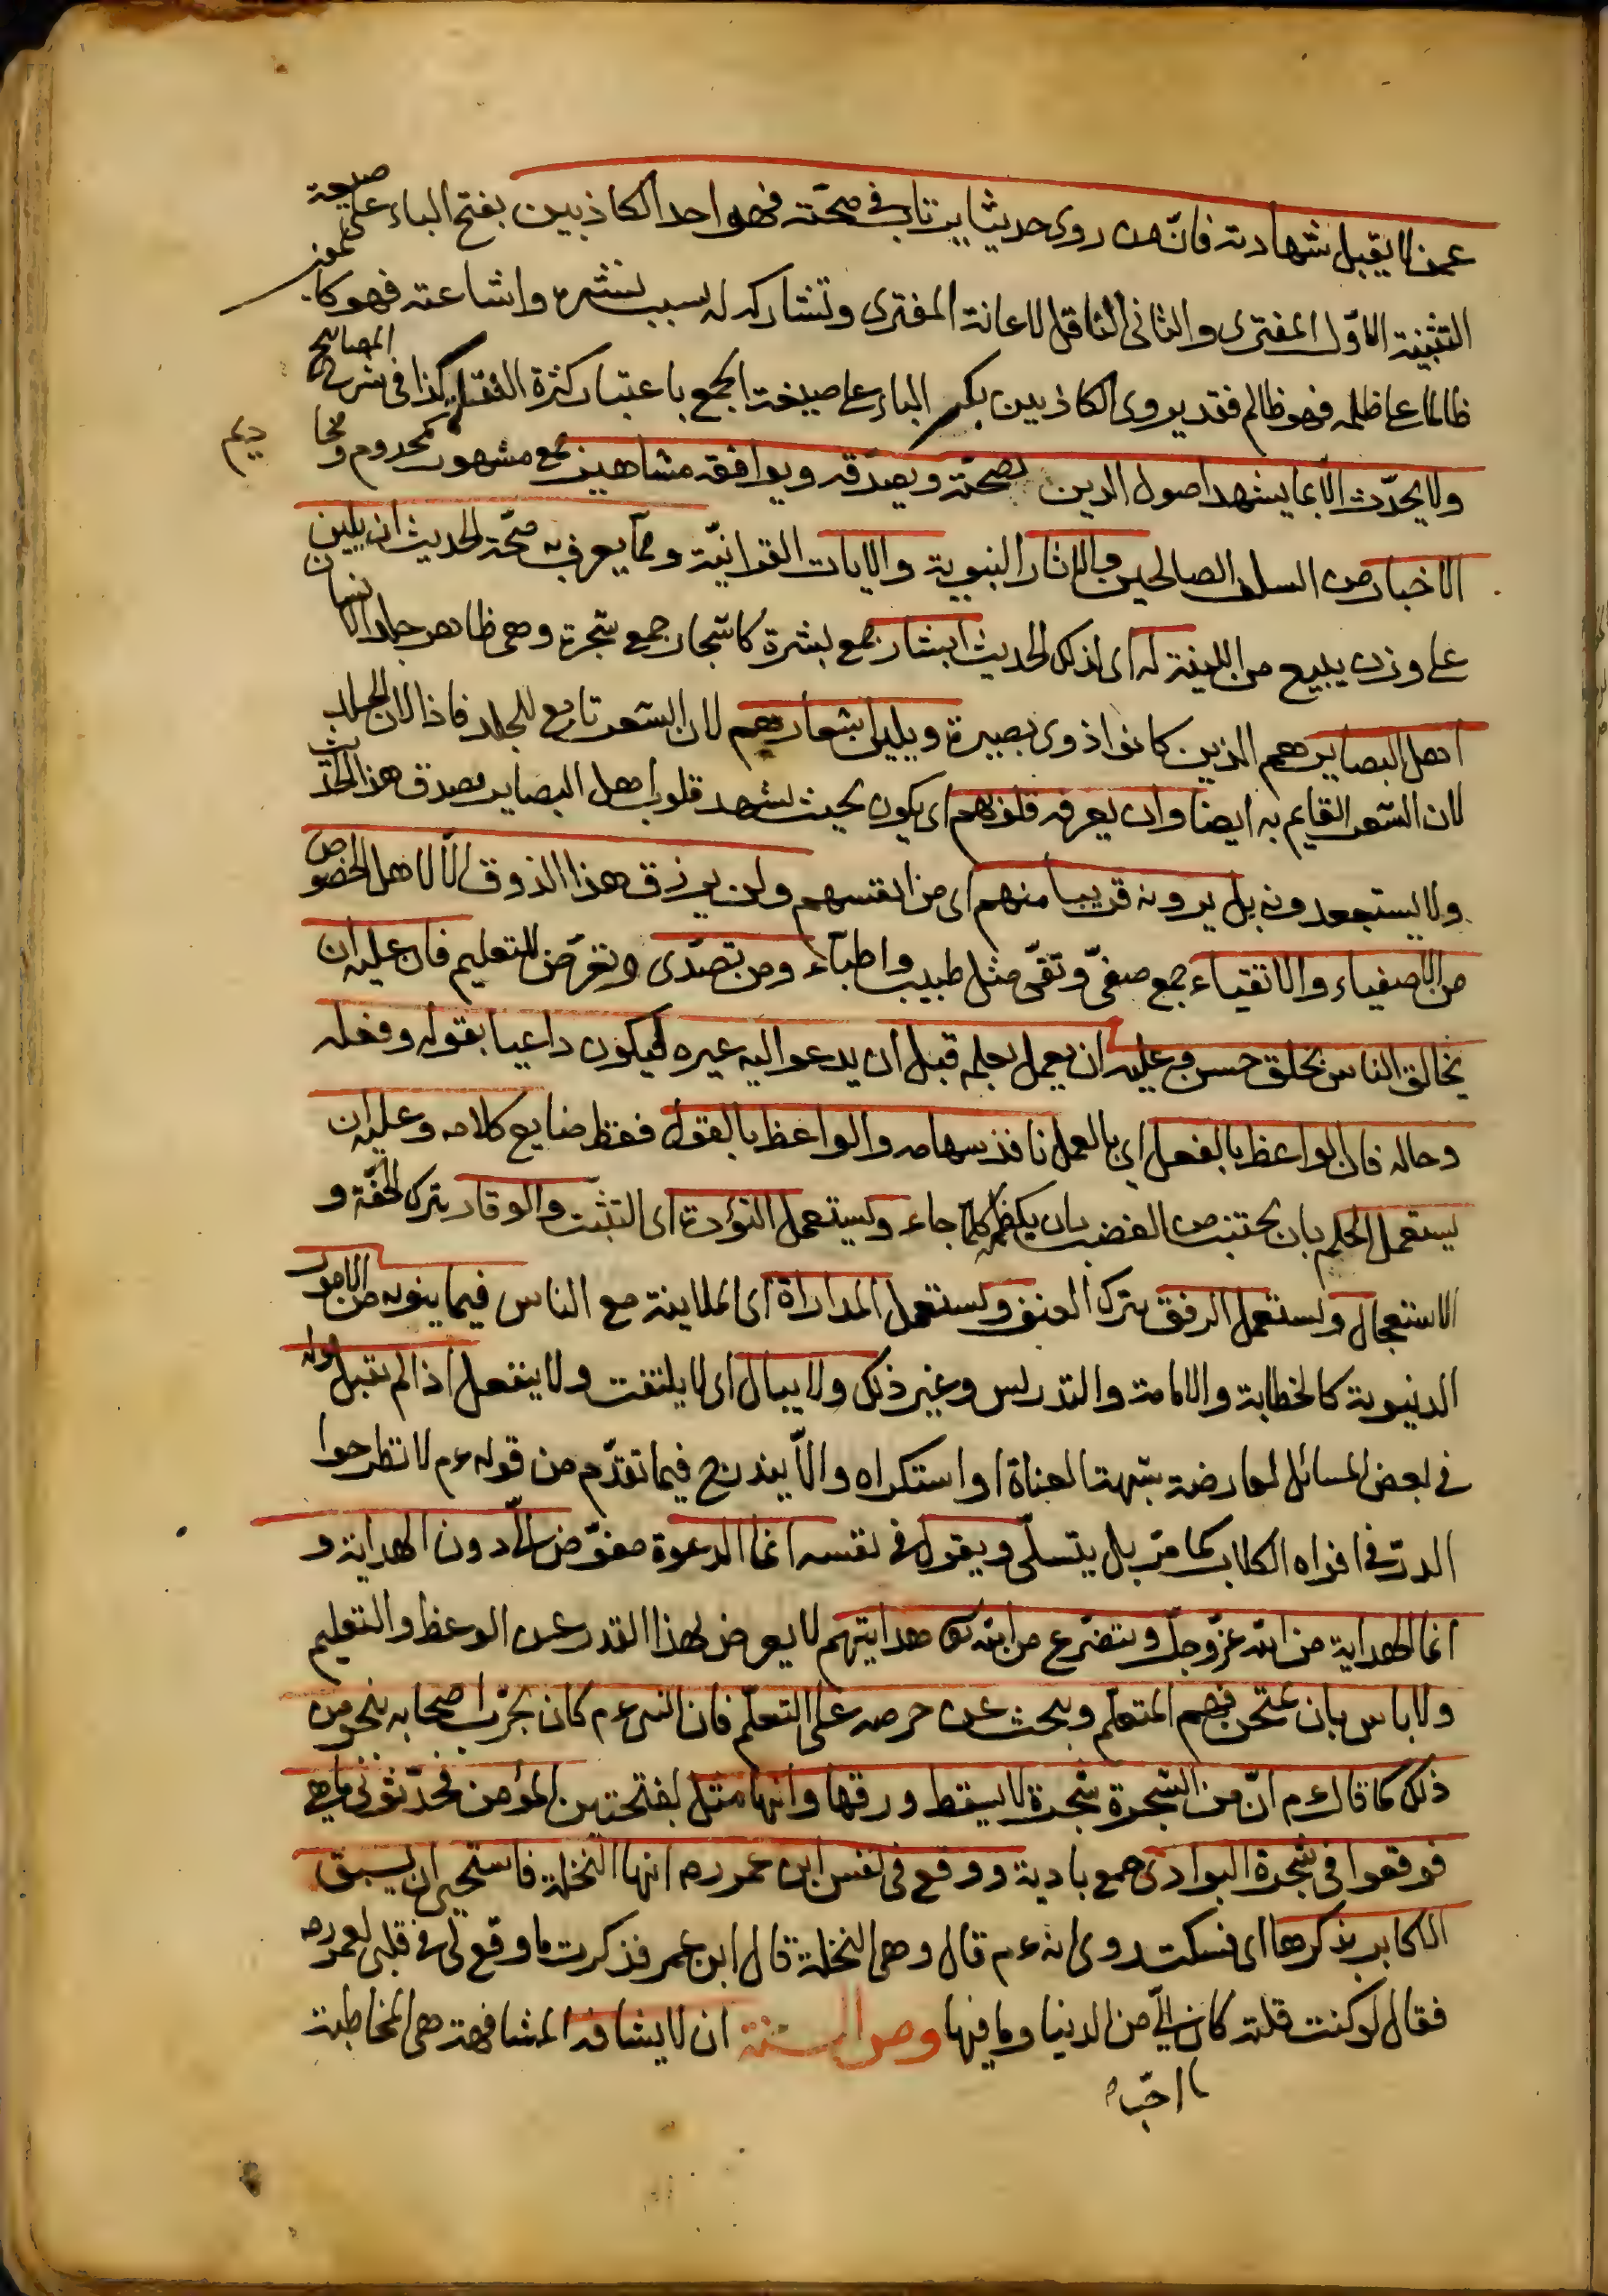 عمن لا يقبل شهادته فانّ من روى حديثا يرتاب في صحّته فهو احد الكاذبين بفتح الباء على صيغة
التثنية الاوّل المفترى والثانى الناقل لاعانة المفترى وتشاركه له بسبب نشره واشاعته فهو كمن
ظالما على ظلمه فهو ظالم فقد يروى الكاذبين بكسر الباء على صيغة الجمع باعتبار كثرة النقلة كذا فى شرح المصابيح
ولا يحدّث الا بما يشهد اصول الدين بصحّته ويصدّقه ويوافقه مشاهير جمع مشهور كمخدوم ومخاديم
الاخبار من السلف الصالحين والاثار النبوية والايات القرانيّة وممّا يعرف به صحّة الحديث ان يلين
على وزن يبيع من اللينة له اى لذلك الحديث ابشار جمع بشرة كاشجار جمع شجرة وهى ظاهر جلد الانسان
اهل البصاير هم الذين كانوا ذوى بصيرة ويلين اشعارهم لان الشعر تابع للجلد فاذا لان الجلد
لان الشعر القايم به ايضا وان يعرفه قلوبهم اى يكون بحيث يشهد قلوب اهل البصاير بصدق هذا الحديث
ولا يستبعدونه بل يرونه قريبا منهم اى من انفسهم ولن يرزق هذا الذوق الّا لاهل الخصوص
من الاصفياء والاتقياء جمع صفىّ وتقىّ مثل طبيب واطبّاء ومن تصدّى وتعرّض للتعليم فان عليه ان
يخالق الناس بخلق حسن وعليه ان يعمل بعلمه قبل ان يدعوا اليه غيره فيكون داعيا بقوله وفعله
وحاله فان الواعظ بالفعل اى بالعمل نافذ سهامه والواعظ بالقول فقط ضايع كلامه وعليه ان
يستعمل الحلم بان يجتنب من الغضب بان يكظم كلّما جاء ويستعمل التؤدة اى التثبّت والوقار بترك الخفّة و
الاستعجال ويستعمل الرفق بترك العنف ويستعمل المداراة اى الملاينة مع الناس فيما ينوبه من الامور
الدنيوية كالخطابة والامامة والتدريس وغير ذلك ولا يبال اى لا يلتفت ولا ينفعل اذا لم تقبل قوله
فى بعض المسائل لمعارضة شبهة العناة او استكراه والّا يندرج فيما تقدّم من قوله عم لا تطرحوا
الدرّ فى افواه الكلاب كما مرّ بل يتسلّى ويقول فى نفسه انما الدعوة مفوّض الىّ دون الهداية و
انما الهداية من الله عزّ وجلّ ويتضرّع من الله تعالى هدايتهم لا يعرض لهذا القدر عن الوعظ والتعليم
ولا باس بان يمتحن فهم المتعلّم ويبحث عن حرصه على التعلّم فان النبى عم كان يجرّب اصحابه بنحو من
ذلك كما قال عم انّ من الشجرة شجرة لا يسقط ورقها وانها مثل بفتحتين المؤمن فحدّثونى ما هى
فوقعوا فى شجرة البوادى جمع بادية ووقع فى نفس ابن عمر رم انها النخلة فاستحيى ان يسبق
الاكابر بذكرها اى فسكت روى انه عم قال وهى النخلة قال ابن عمر فذكرت ما وقع لى فى قلبى لعمر رم
فقال لو كنت قلته كان الىّ من الدنيا وما فيها ومن السنة ان لا يشافه المشافهة هى المخاطبة
احبّ